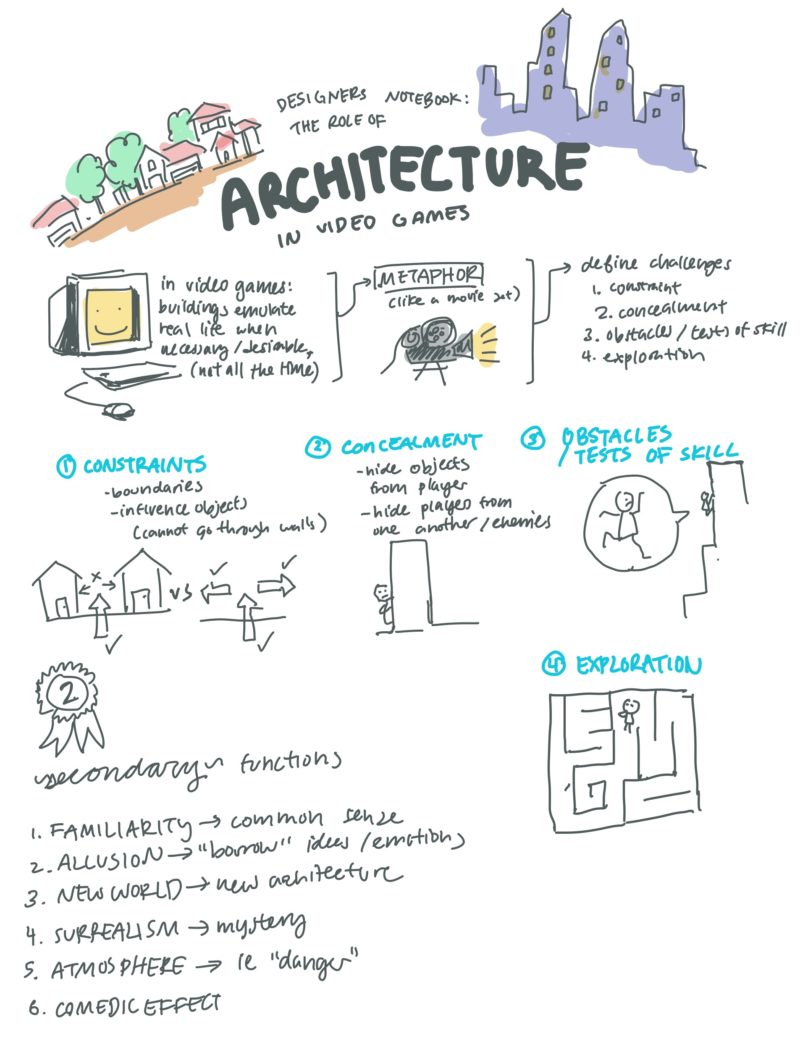 DESIGNERS NOTEBOOK:
THE ROLE OF
ARCHITECTURE
IN VIDEO GAMES
in video games:
buildings emulate
real life when
necessary/desirable,
(not all the time)
METAPHOR
(like a movie set)
define challenges
1. constraint
2. concealment
3. obstacles/tests of skill
4. exploration
① CONSTRAINTS
-boundaries
-influence objects
(cannot go through walls)
x
vs
② CONCEALMENT
-hide objects
from player
-hide players from
one another/enemies
③ OBSTACLES
/TESTS OF SKILL
④ EXPLORATION
2
secondary functions
1. FAMILIARITY → common sense
2. ALLUSION → "borrow" ideas/emotions
3. NEW WORLD → new architecture
4. SURREALISM → mystery
5. ATMOSPHERE → ie "danger"
6. COMEDIC EFFECT